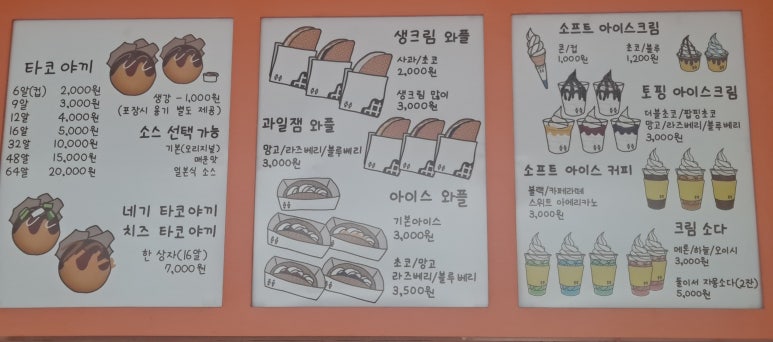 타코 야끼
6알(컵) 2,000원
9알 3,000원
12알 4,000원
16알 5,000원
32알 10,000원
48알 15,000원
64알 20,000원
생강 - 1,000원
(포장시 용기 별도 제공)
소스 선택 가능
기본(오리지널)
매운맛
일본식 소스
네기 타코야끼
치즈 타코야끼
한 상자(16알)
7,000원
생크림 와플
사과/초코
2,000원
생크림 많이
3,000원
과일잼 와플
망고/라즈베리/블루베리
3,000원
아이스 와플
기본아이스
3,000원
초코/망고
라즈베리/블루베리
3,500원
소프트 아이스크림
콘/컵
1,000원
초코/블루
1,200원
토핑 아이스크림
더블초코/팝핑초코
망고/라즈베리/블루베리
3,000원
소프트 아이스 커피
블랙/카페라떼
스위트 아메리카노
3,000원
크림 소다
메론/하늘/오이시
3,000원
둘이서 자몽소다(2잔)
5,000원